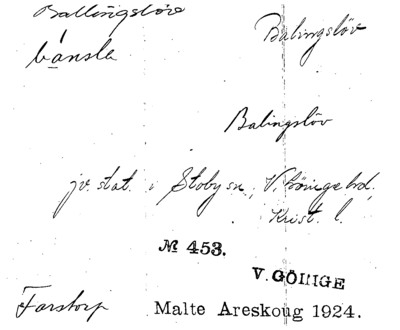 Ballingslöv
Balingslöv
bǻnsla
Balingslöv
jv. stat. i Stoby sn, V. Göinge hd,
Krist. l.
№ 453.
V. GÖINGE
Farstorp
Malte Areskoug 1924.